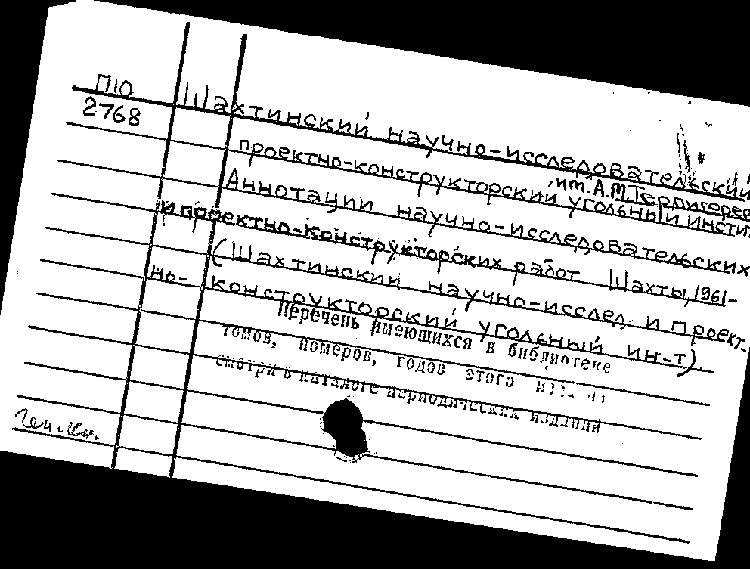 ПЮ
2768
Шахтинский научно-исследовательский
проектно-конструкторский угольный инстит.
им. А.М. Терпигорев
Аннотации научно-исследовательских
и проектно-конструкторских работ Шахты, 1961-
(Шахтинский научно-исслед. и проект.
но-конструкторский угольный ин-т)
Перечень имеющихся в библиотеке
томов, номеров, годов этого
смотри в каталоге периодических изданий